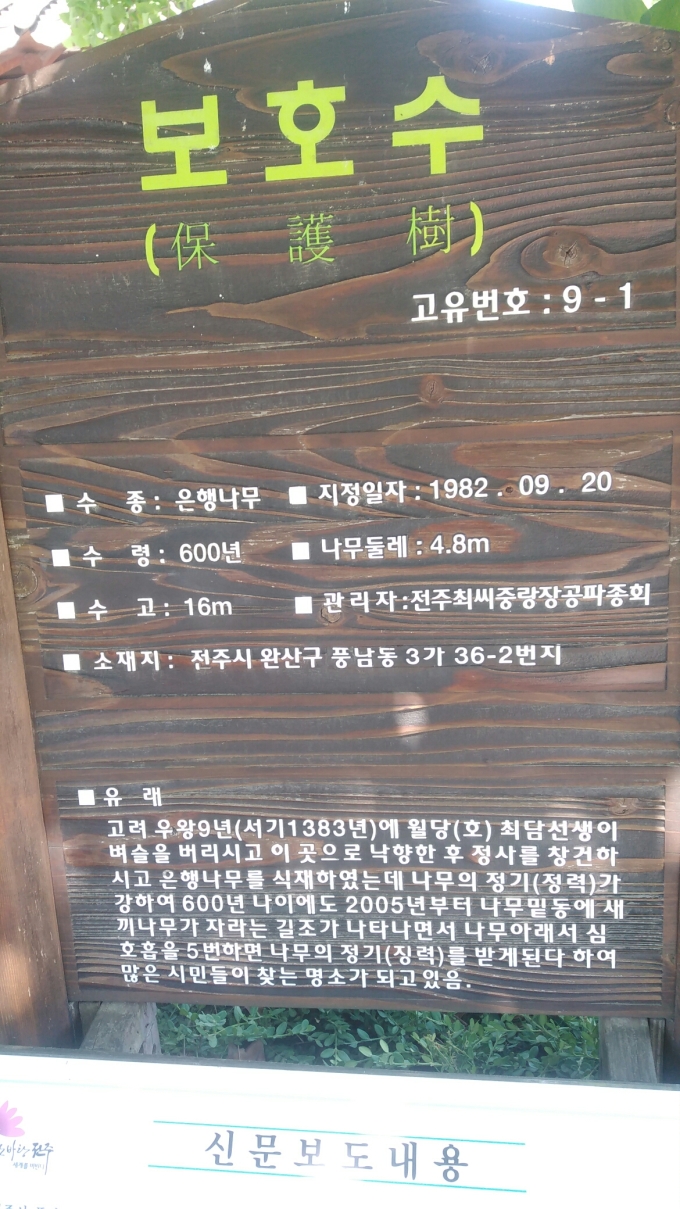 보호수
(保護樹)
고유번호 : 9 - 1
■ 수 종 : 은행나무 ■ 지정일자 : 1982 . 09 . 20
■ 수 령 : 600년 ■ 나무둘레 : 4.8m
■ 수 고 : 16m ■ 관 리 자 : 전주최씨중랑장공파종회
■ 소재지 : 전주시 완산구 풍남동 3가 36-2번지
■ 유 래
고려 우왕9년(서기1383년)에 월당(호) 최담선생이
벼슬을 버리시고 이 곳으로 낙향한 후 정사를 창건하
시고 은행나무를 식재하였는데 나무의 정기(정력)가
강하여 600년 나이에도 2005년부터 나무밑동에 새
끼나무가 자라는 길조가 나타나면서 나무아래서 심
호흡을 5번하면 나무의 정기(징력)를 받게된다 하여
많은 시민들이 찾는 명소가 되고있음.
신문보도내용